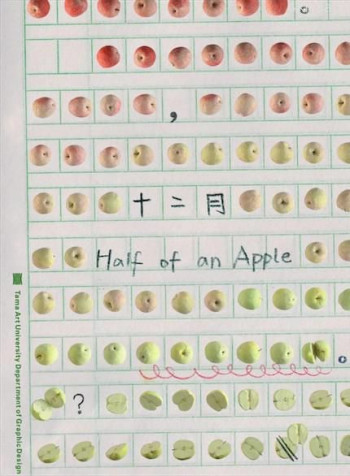 。
,
十二月
Half of an Apple
。
?
Tama Art University Department of Graphic Design